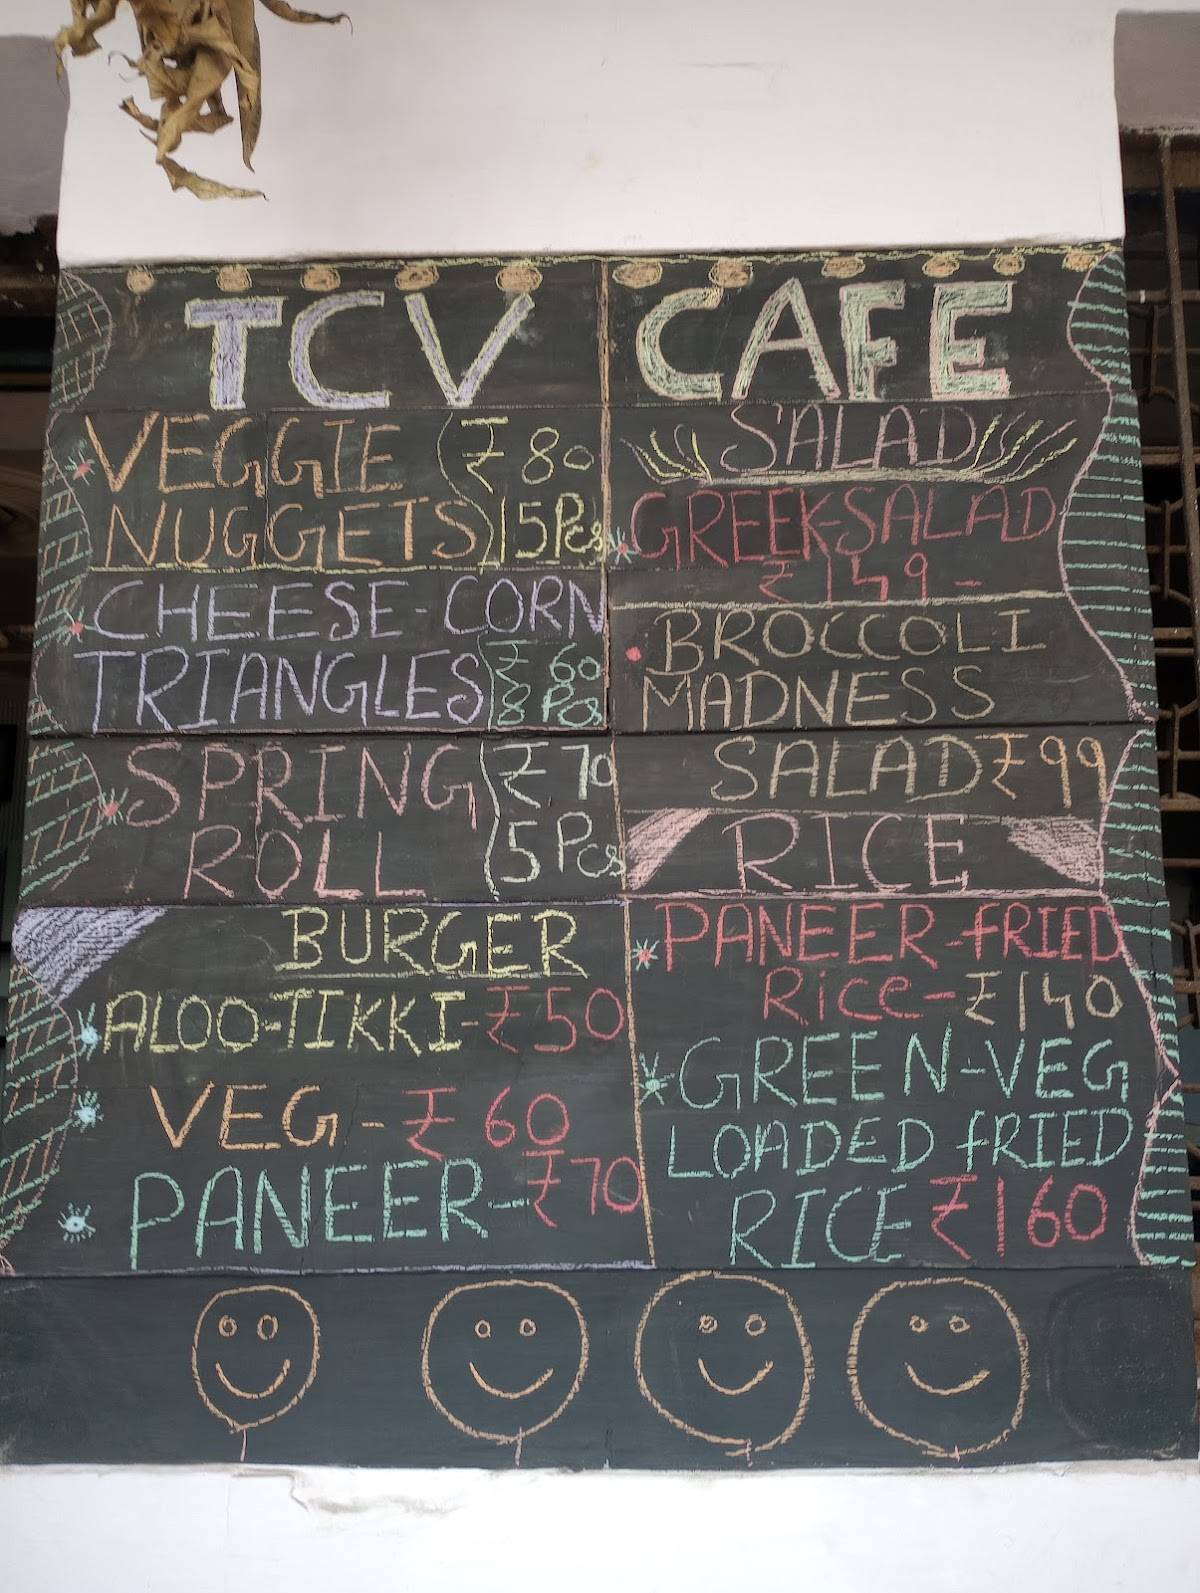 TCV CAFE
VEGGIE ₹ 80
NUGGETS 15Pcs
CHEESE-CORN
TRIANGLES ₹ 60
8 Pcs
SPRING ₹ 70
ROLL 5 Pcs
BURGER
ALOO-TIKKI-₹50
VEG-₹60
PANEER-₹70
SALAD
GREEK-SALAD
₹159-
BROCCOLI
MADNESS
SALAD ₹99
RICE
PANEER-fRIED
RiCe-₹140
GREEN-VEG
LOADED fRIED
RICE ₹160